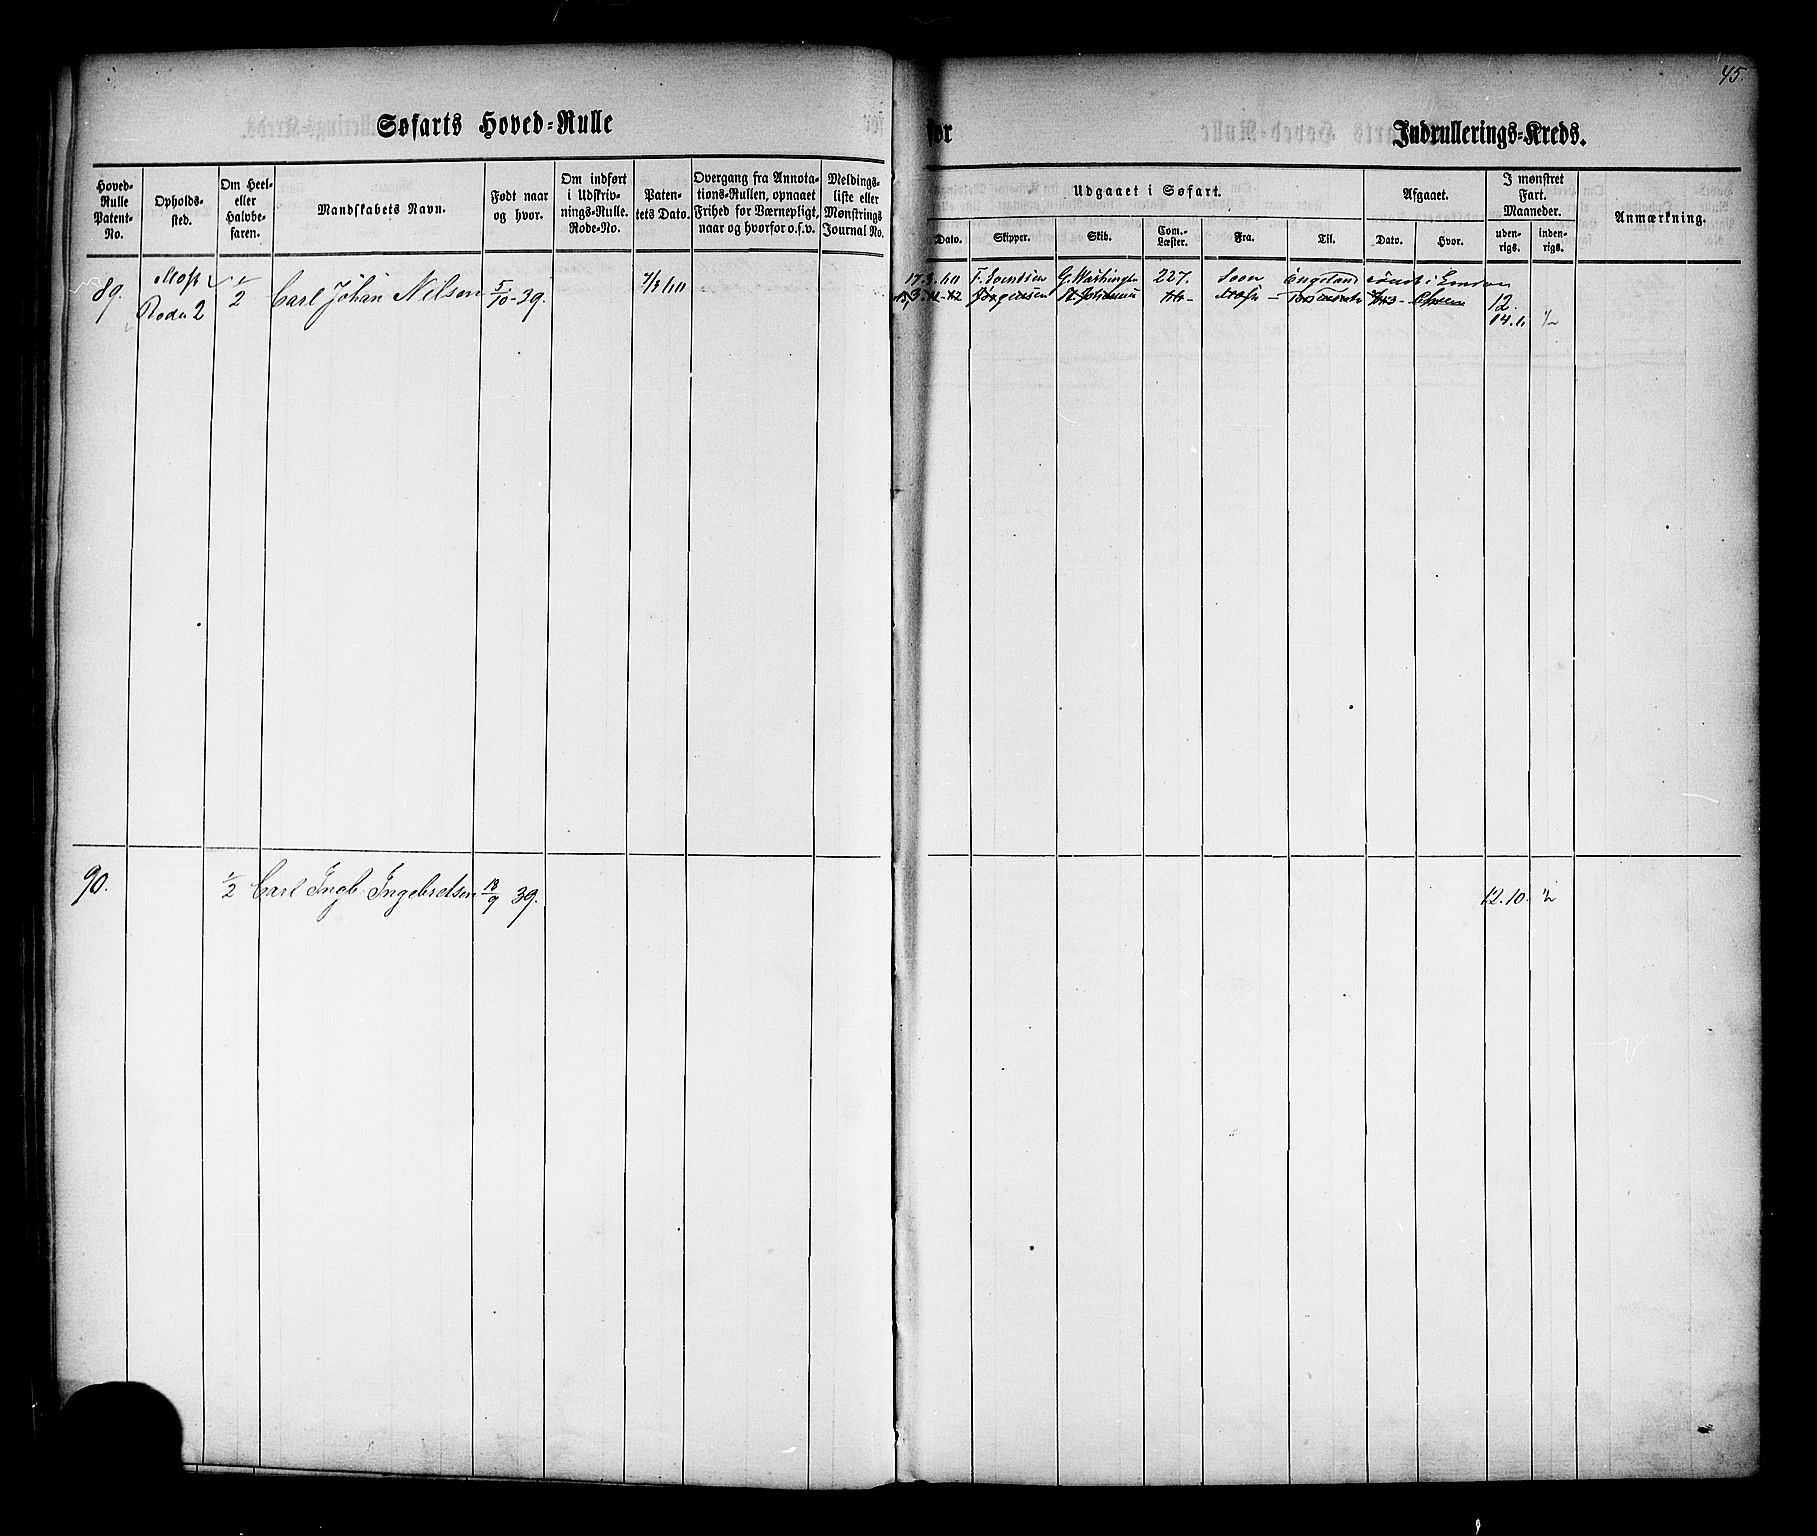 45.
Søfarts Hoved-Rulle
for
Indrullerings-Kreds.
Hoved-Rulle Patent-No.
Opholds-sted.
Om Heel- eller Halvbe-faren.
Mandskabets Navn.
Født naar og hvor.
Om indført i Udskriv-nings-Rulle. Rode-No.
Paten-tets Dato.
Overgang fra Annota-tions-Rullen, opnaaet Frihed for Værnepligt, naar og hvorfor o.s.v.
Meldings-liste eller Mønstrings Journal No.
Udgaaet i Søfart.
Dato.
Skipper.
Skib.
Com.-Læster.
Fra.
Til.
Afgaaet.
Dato.
Hvor.
I mønstret Fart. Maaneder.
uden-rigs.
inden-rigs.
Anmærkning.
89. Moss 1/2 Carl Johan Nilsen 5/10-39. 17.3.60 G. Washington 227. Soon England rømt i London
Rode 2 Jørgensen St. Johannes
12
14.
90. 1/2 Carl Ingb. Ingebretsen 18/9 39. 12.10.